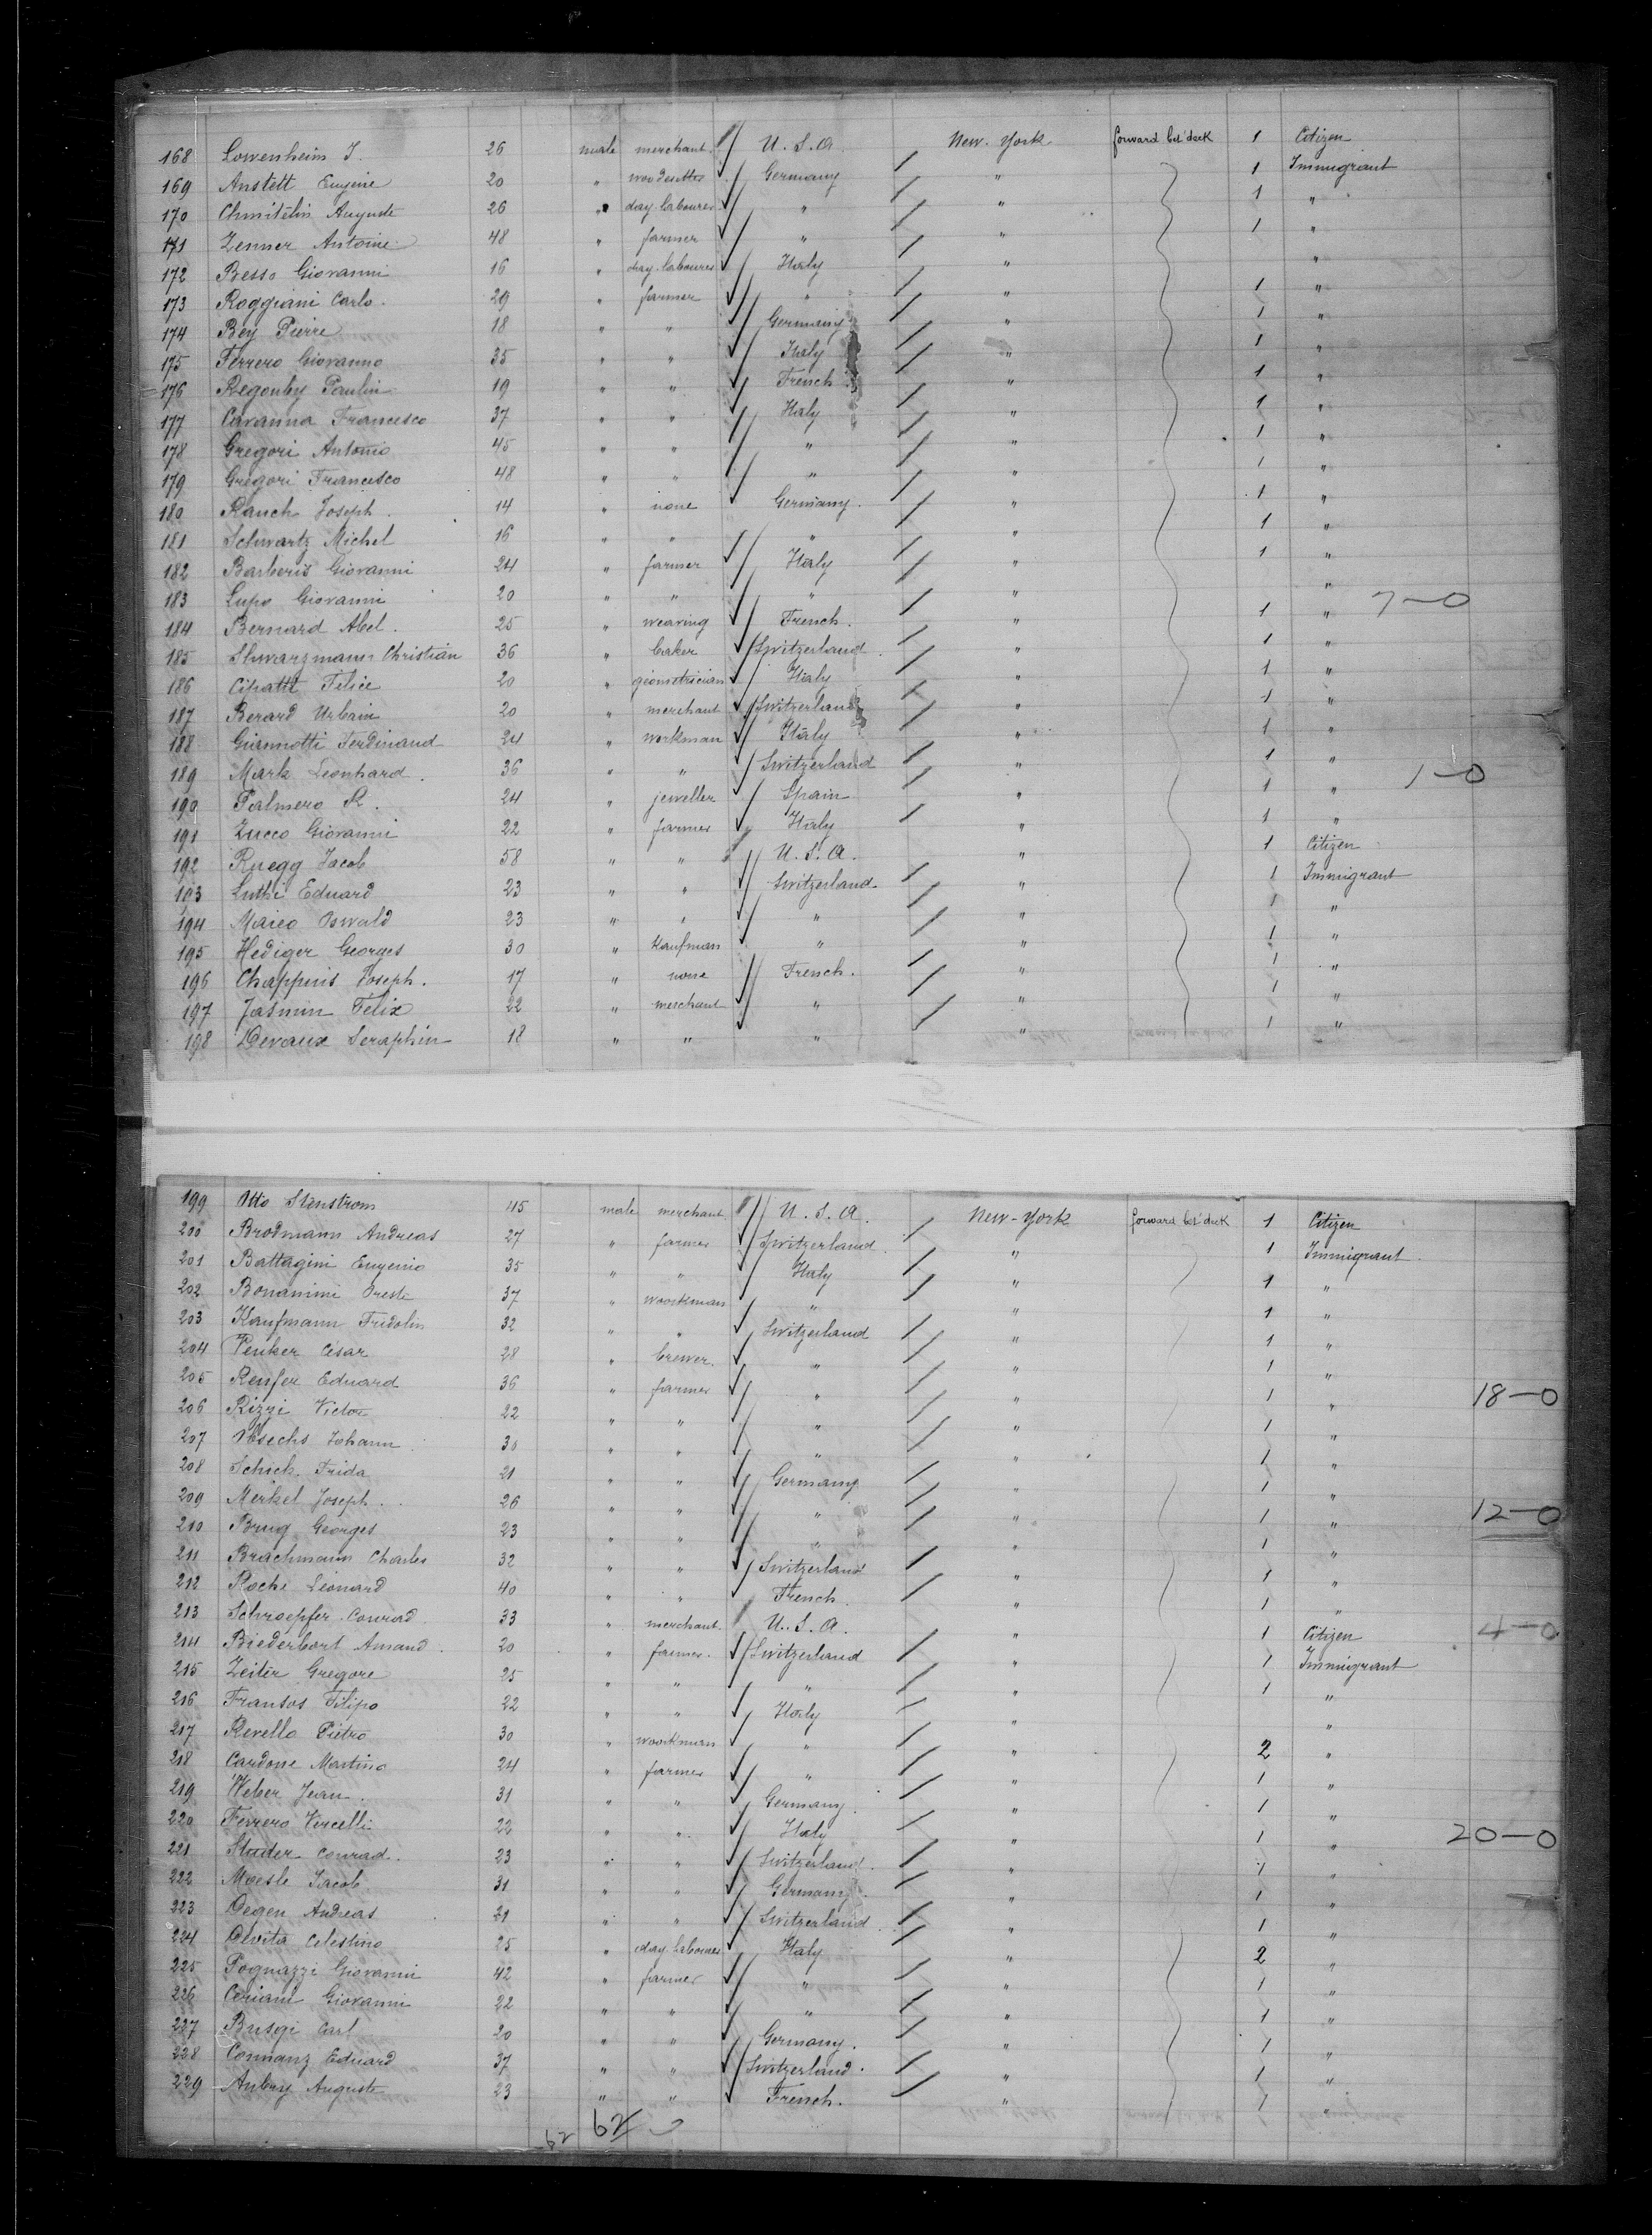 168 Lowenheim J. 26 male merchant. U. S. A. New-York forward bet' deck 1 Citizen
169 Anstett Eugène 20 " Germany " 1 Immigrant
170 Auguste 26 " day-labourer " " 1 "
171 Zenner Antoine 48 " farmer " " 1 "
172 Besso Giovanni 16 " day-labourer Italy " "
173 Roggiani Carlo. 29 " farmer " " 1 "
174 Bey Pierre 18 " " Germany " 1 "
175 Ferrero Giovanno 35 " " Italy " 1 "
176 Regouby Paulin 19 " " French " 1 "
177 Cavanna Francesco 37 " " Italy " 1 "
178 Gregori Antonio 45 " " " " 1 "
179 Gregori Francesco 48 " " " " 1 "
180 Rauch Joseph. 14 " none Germany. " 1 "
181 Schwartz Michel 16 " " " " 1 "
182 Barberis Giovanni 24 " farmer Italy " 1 "
183 Lupo Giovanni 20 " " " " "
7-0
184 Bernard Abel. 25 " weaving French. " 1 "
185 Shwarzmann Christian 36 " baker Switzerland. " 1 "
186 Felice 20 " géometrician Italy " 1 "
187 Berard Urbain 20 " merchant Switzerland " 1 "
188 Giannotti Ferdinand 24 " workman Italy " 1 "
189 Mark Leonhard. 36 " " Switzerland " 1 "
1-0
190 Palmero R. 24 " jeweller Spain " 1 "
191 Zucco Giovanni 22 " farmer Italy " 1 "
192 Ruegg Jacob 58 " " U. S. A. " 1 Citizen
193 Luthi Eduard 23 " " Switzerland. " 1 Immigrant
194 Oswald 23 " " " " 1 "
195 Hediger Georges 30 " Kaufman " " 1 "
196 Chappuis Joseph. 17 " none French. " 1 "
197 Jasmin Félix 22 " merchant " " 1 "
198 Devaux Seraphin 18 " " " " 1 "
199 Otto Stenstrom 45 male merchant U. S. A. New-York forward bet' deck 1 Citizen
200 Brodmann Andreas 27 " farmer Switzerland " 1 Immigrant.
201 Battagini Eugenio 35 " " Italy " 1 "
202 Bonanimi Oreste 37 " woorkman " " 1 "
203 Kaufmann Fridolin 32 " " Switzerland " 1 "
204 Penker César 28 " brewer. " " 1 "
205 Renfer Eduard 36 " farmer " " 1 "
18-0
206 Rizzi Victor 22 " " " " 1 "
207 Johann 30 " " " " 1 "
208 Schick Frida 21 " " Germany " 1 "
209 Merkel Joseph. 26 " " " " 1 "
12-0
210 Brug Georges 23 " " " " 1 "
211 Brachmann Charles 32 " " Switzerland " 1 "
212 Roche Léonard 40 " " French. " 1 "
213 Schroepfer Conrad 33 " merchant. U. S. A. " 1 Citizen
4-0
214 Biederbort Amand. 20 " farmer. Switzerland " 1 Immigrant
215 Zeiter Gregore 25 " " " " 1 "
216 Fransos Filipo 22 " " Italy " "
217 Revello Pietro 30 " woorkman " " 2 "
218 Cardone Martino 24 " farmer " " 1 "
219 Weber Jean. 31 " " Germany. " 1 "
220 Ferrero Vercelli 22 " " Italy " 1 "
20-0
221 Studer Conrad. 23 " " Switzerland. " 1 "
222 Moesle Jacob 31 " " Germany. " 1 "
223 Degen Andreas 21 " " Switzerland " 1 "
224 Celestino 25 " day-labourer Italy " 2 "
225 Pognazzi Giovanni 42 " farmer " " 1 "
226 Ceriani Giovanni 22 " " " " 1 "
227 Carl 20 " " Germany. " 1 "
228 Eduard 37 " " Switzerland. " 1 "
229 Aubry Auguste 23 " " French. " 1 "
62 62